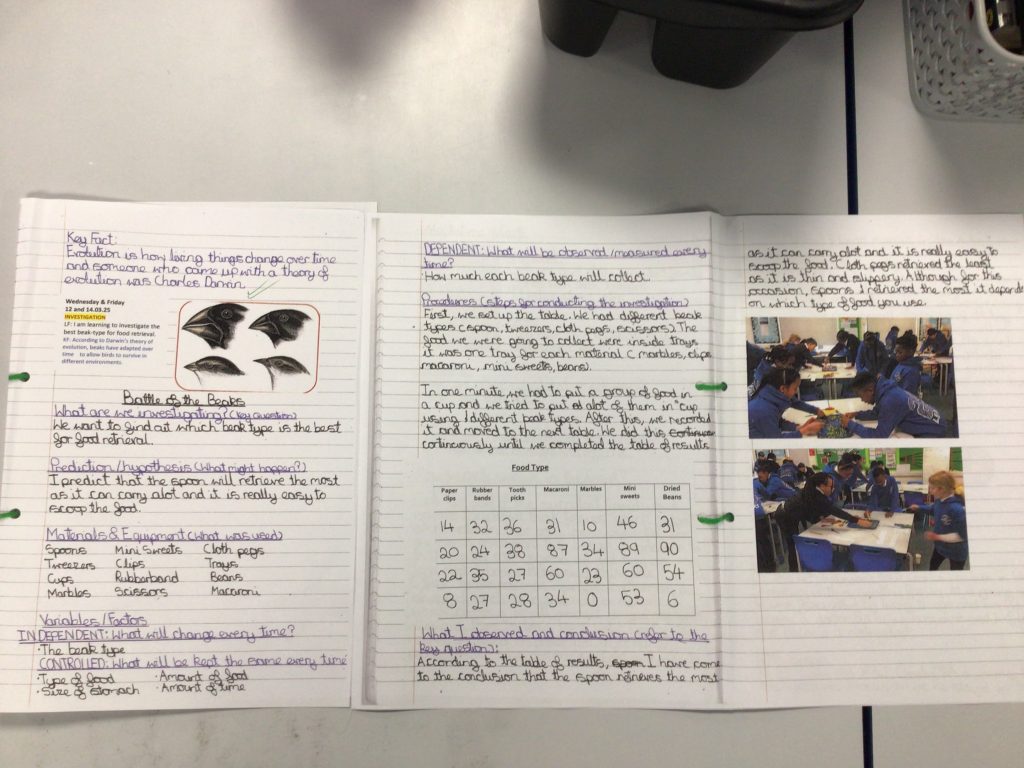 Key Fact:
Evolution is how living things change over time
and someone who came up with a theory of
evolution was Charles Darwin.
Wednesday & Friday
12 and 14.03.25
INVESTIGATION
LF: I am learning to investigate the
best beak-type for food retrieval.
KF: According to Darwin's theory of
evolution, beaks have adapted over
time to allow birds to survive in
different environments.
Battle of the Beaks
What are we investigating? (Key Question)
We want to find out which beak type is the best
for food retrieval.
Prediction/hypothesis (What might happen?)
I predict that the spoon will retrieve the most
as it can carry alot and it is really easy to
scoop the food.
Materials & Equipment (What was used)
Spoons Mini Sweets Cloth pegs
Tweezers Clips Trays
Cups Rubberband Beans
Marbles Scissors Macaroni
Variables/Factors
INDEPENDENT: What will change every time?
· The beak type
CONTROLLED: What will be kept the same every time
· Type of food · Amount of food
· Size of stomach · Amount of time
DEPENDENT: What will be observed/measured every
time?
· How much each beak type will collect.
Procedures (steps for conducting the investigation)
First, we set up the table. We had different beak
types (spoon, tweezers, cloth pegs, scissors). The
food we were going to collect were inside trays
it was one tray for each material (marbles, clips,
macaroni, mini sweets, beans).
In one minute we had to put a group of food in
a cup and we tried to put a alot of them in cup
using different beak types. After this, we recorded
it and moved to the next table. We did this
continuously until we completed the table of results
Food Type
Paper clips Rubber bands Tooth picks Macaroni Marbles Mini sweets Dried Beans
14 32 36 31 10 46 31
20 24 38 87 34 89 90
22 35 27 60 23 60 54
8 27 28 34 0 53 6
What I observed and conclusion (refer to the
key question):
According to the table of results, spoon I have come
to the conclusion that the spoon retrieves the most
as it can carry alot and it is really easy to
scoop the food. Cloth pegs retrieved the least
as it is thin and slippery. Although for this
occasion, spoons retrieved the most it depends
on which type of food you use.